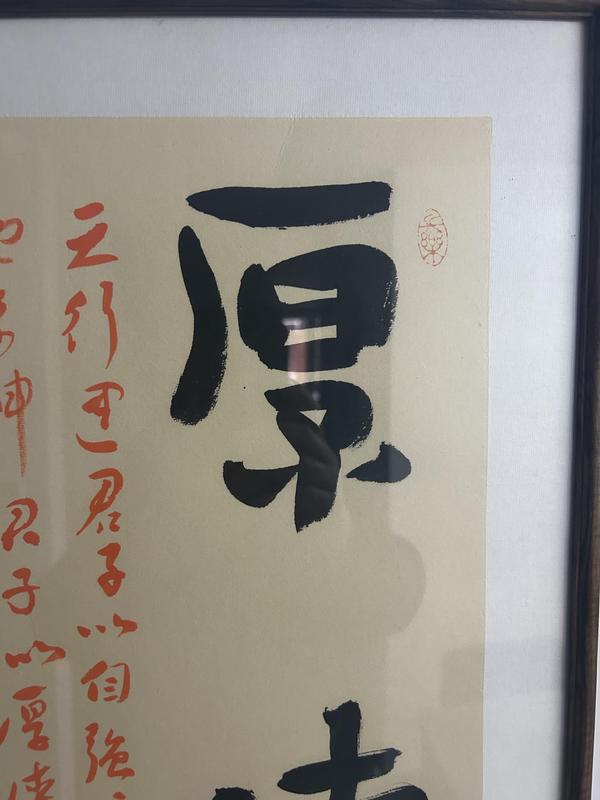 厚
天行健君子以自強
坤君子以厚德